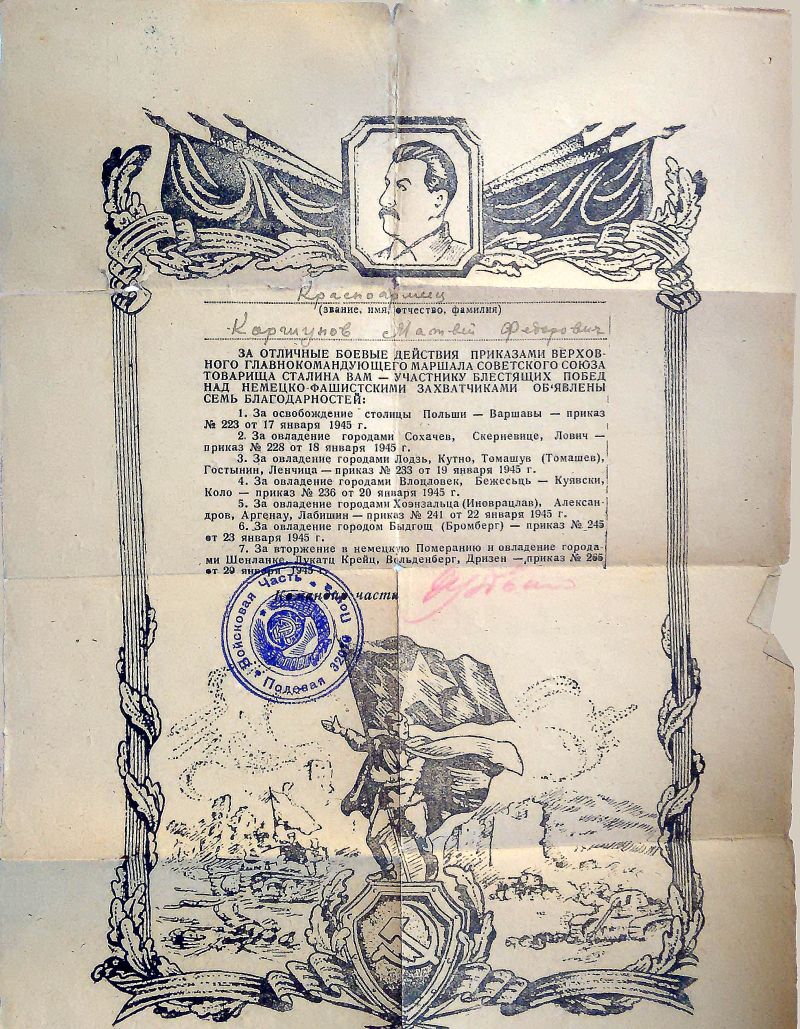 Красноармеец
(звание, имя, отчество, фамилия)
Коршунов Матвей Федорович
ЗА ОТЛИЧНЫЕ БОЕВЫЕ ДЕЙСТВИЯ ПРИКАЗАМИ ВЕРХОВ-
НОГО ГЛАВНОКОМАНДУЮЩЕГО МАРШАЛА СОВЕТСКОГО СОЮЗА
ТОВАРИЩА СТАЛИНА ВАМ — УЧАСТНИКУ БЛЕСТЯЩИХ ПОБЕД
НАД НЕМЕЦКО-ФАШИСТСКИМИ ЗАХВАТЧИКАМИ ОБ'ЯВЛЕНЫ
СЕМЬ БЛАГОДАРНОСТЕЙ:
1. За освобождение столицы Польши — Варшавы — приказ
№ 223 от 17 января 1945 г.
2. За овладение городами Сохачев, Скерневице, Лович —
приказ № 228 от 18 января 1945 г.
3. За овладение городами Лодзь, Кутно, Томашув (Томашев),
Гостынин, Ленчица — приказ № 233 от 19 января 1945 г.
4. За овладение городами Влоцловек, Бжесьць — Куявски,
Коло — приказ № 236 от 20 января 1945 г.
5. За овладение городами Хоэнзальца (Иноврацлав), Алексан-
дров, Аргенау, Лабишин — приказ № 241 от 22 января 1945 г.
6. За овладение городом Быдгощ (Бромберг) — приказ № 245
от 23 января 1945 г.
7. За вторжение в немецкую Померанию и овладение города-
ми Шенланке, Лукатц Крейц, Вольденберг, Дризен — приказ № 265
от 29 января 1945 г.
Командир части
Войсковая Часть
Полевая Почта 32010